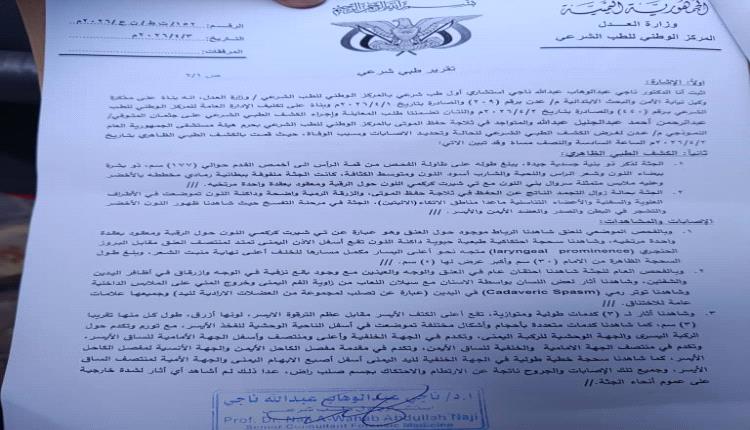 الجمهورية اليمنية
وزارة العدل
المركز الوطني للطب الشرعي
تقرير طبي شرعي
ص ٢/١
أولاً: الإشارة:
أثبت أنا الدكتور ناجي عبدالوهاب عبدالله ناجي استشاري أول طب شرعي بالمركز الوطني للطب الشرعي / وزارة العدل، انه بناءً على مذكرة
وكيل نيابة الأمن والبحث الابتدائية م/ عدن برقم (٢٠٩) والصادرة بتاريخ وبناءً على تكليف الإدارة العامة للمركز الوطني للطب
الشرعي برقم والصادرة بتاريخ واللتان تضمنتا طلب المعاينة وإجراء الكشف الطبي الشرعي على جثمان المتوفي/
عبدالرحمن أحمد عبدالجليل عبدالله والمتواجد في ثلاجة حفظ الموتى بالمركز الوطني للطب الشرعي بحرم هيئة مستشفى الجمهورية العام
النموذجي م/ عدن لغرض الكشف الطبي الشرعي للحالة وتحديد الاصابات وسبب الوفاة، حيث قمت بالكشف الطبي الظاهري في
الساعة السادسة والنصف مساءً وقد تبين الاتي:
ثانياً: الكشف الطبي الظاهري:
١. الجثة لذكر ذو بنية جسدية جيدة، يبلغ طوله على طاولة الفحص من قمة الرأس الى أخمص القدم حوالي (١٧٧) سم، ذو بشرة
بيضاء اللون وشعر الرأس واللحية والشارب أسود اللون ومتوسط الكثافة، كانت الجثة ملفوفة ببطانية رمادي مخططه بالأخضر
وعليه ملابس متمثلة سروال بني اللون مع تي شيرت كركمي اللون حول الرقبة ومعقود بعقدة واحدة مرتخيه. ///
٢. الجثة بحالة زوال التجمد الناتج عن الحفظ في ثلاجة حفظ الموتى، والزرقة الرمية واضحة وداكنة اللون تموضعت في الأطراف
العلوية والسفلية والأعضاء التناسلية ماعدا مناطق الاتكاء (الاليتين)، الجثة في مرحلة التفسخ حيث شاهدنا ظهور اللون الأخضر
والتشجر في البطن والصدر والعضد الأيمن والأيسر. ///
الإصابات والمشاهدات:
١. وبالفحص الموضعي للعنق شاهدنا الرباط موجود حول العنق وهو عبارة عن تي شيرت كركمي اللون حول الرقبة ومعقود بعقدة
واحدة مرتخيه، وشاهدنا سحجة احتكاكية طبيعة حيوية داكنة اللون تقع أسفل الاذن اليمنى تمتد لمنتصف العنق مقابل البروز
الحنجري (laryngeal prominence) متجه نحو أعلى اليسار مكمل مسارها للخلف أعلى نهاية منبت الشعر، وبلغ طول
السحجة الظاهرة من الامام (٣٠) سم وأكبر عرض لها سم. ///
٢. وبالفحص العام للجثة شاهدنا احتقان عام في العنق والوجه والعينين مع وجود بقع نزفية في الوجه وازرقاق في أظافر اليدين
والشفتين، وشاهدنا أثر لعض اللسان بواسطة الاسنان مع سيلان اللعاب من زاوية الفم اليمنى وخروج المني على الملابس الداخلية
وشاهدنا توتر رمي (Cadaveric Spasm) في اليدين (عبارة عن تصلب لمجموعة من العضلات الارادية لليد) وجميعها علامات
عامة للاختناق. ///
٣. وشاهدنا آثار لـ (٣) كدمات طولية ومتوازية، تقع أعلى الكتف الأيسر مقابل عظم الترقوة الايسر، لونها أزرق، طول كل منها تقريباً
(٣) سم، كما شاهدنا كدمات متعددة بأحجام وأشكال مختلفة تموضعت في أسفل الناحية الوحشية للفخذ الأيسر، مع تورم وتكدم حول
الركبة اليسرى والجهة الوحشية للركبة اليمنى، وتكدم في الجهة الخلفية وأعلى ومنتصف وأسفل الجهة الأمامية للساق الأيسر،
وتكدم في منتصف الجهة الامامية والخلفية للساق الأيمن، وتكدم في مقدمة مفصل الكاحل الأيمن والجهة الأنسية لمفصل الكاحل
الأيسر، كما شاهدنا سحجة خطية طولية في الجهة الخلفية لليد اليمنى أسفل أصبع الابهام اليمنى والجهة الأمامية لمنتصف الساق
الأيسر، وجميع تلك الإصابات والجروح ناتجة عن الارتطام والاحتكاك بجسم صلب راض، عدا ذلك لم أشاهد أي آثار لشدة خارجية
على عموم أنحاء الجثة.//
ا.د/ ناجي عبدالوهاب عبدالله ناجي
الرقم:
التاريخ:
المرفقات: